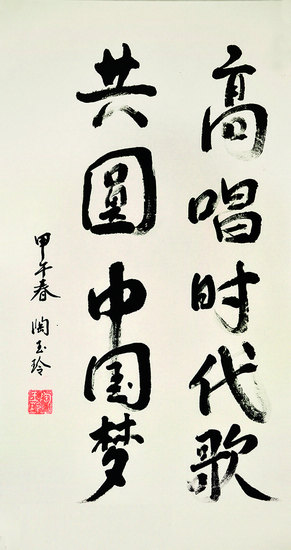 高唱时代歌
共圆中国梦
甲午春 陶玉玲